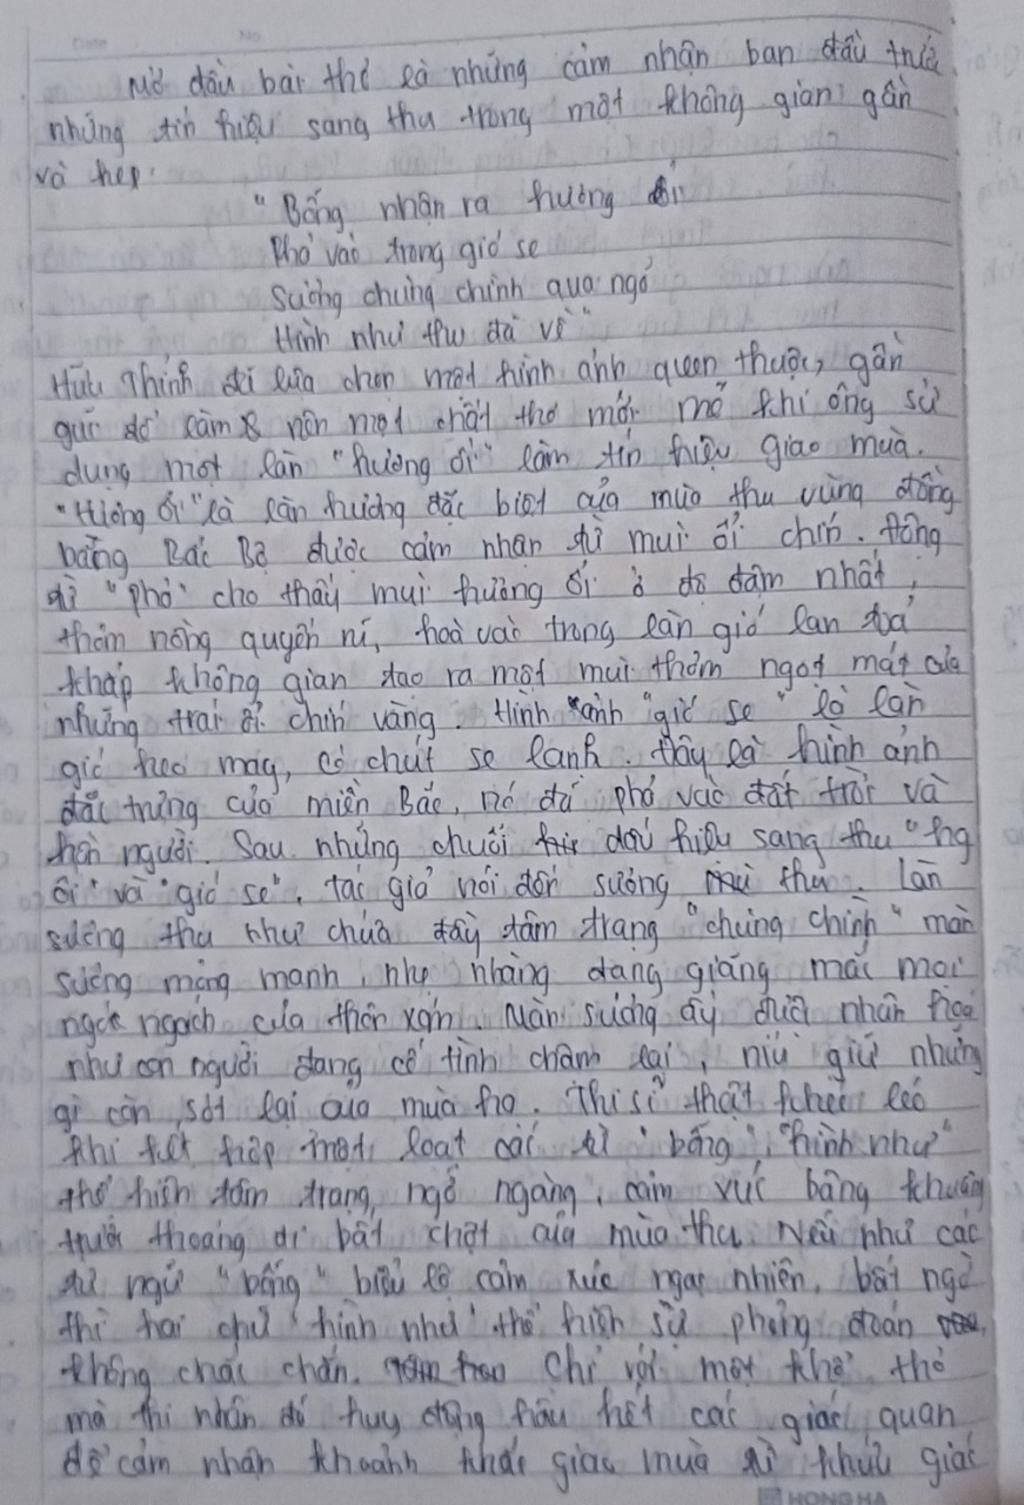 Date No
Mở đầu bài thơ là những cảm nhận ban đầu trước
những tín hiệu sang thu trong một không gian gần
và hẹp:
"Bỗng nhận ra hương ổi
Phả vào trong gió se
Sương chùng chình qua ngõ
Hình như thu đã về"
Hữu Thỉnh đi lựa chọn một hình ảnh quen thuộc, gần
gũi để làm nên một chất thơ mới mẻ khi ông sử
dụng một làn "hương ổi" làm tín hiệu giao mùa.
"Hương ổi" là làn hương đặc biệt của mùa thu vùng đồng
bằng Bắc Bộ được cảm nhận từ mùi ổi chín. Động
từ "phả" cho thấy mùi hương ổi ở độ đậm nhất,
thơm nồng quyến rũ, hoà vào trong làn gió lan toả
khắp không gian tạo ra một mùi thơm ngọt mát của
những trái ổi chín vàng. Hình ảnh "gió se" là làn
gió heo may, có chút se lạnh. Đây là hình ảnh
đặc trưng của miền Bắc, nó đã phả vào đất trời và
hồn người. Sau những chuỗi dấu hiệu sang thu "hg
ổi" và "gió se", tác giả nói đến sương thu. Làn
sương thu như chứa đầy tâm trạng "chùng chình" màn
sương mỏng manh, nhẹ nhàng đang giăng mắc mọi
ngóc ngách của thôn xóm. Màn sương ấy được nhân hoá
như con người đang cố tình chậm lại, níu giữ những
gì còn sót lại của mùa hạ. Thi sĩ thật khéo léo
khi kết hợp một loạt các từ "bỗng", "hình như"
thể hiện tâm trạng, ngỡ ngàng, cảm xúc bâng khuâng
trước thoáng đi bất chợt của mùa thu. Nếu như các
từ ngữ "bỗng" biểu lộ cảm xúc ngạc nhiên, bất ngờ
thì hai chữ "hình như" thể hiện sự phỏng đoán
không chắc chắn. Chỉ với một khổ thơ
mà thi nhân đã huy động hầu hết các giác quan
để cảm nhận khoảnh khắc giao mùa từ khứu giác
HONG HA